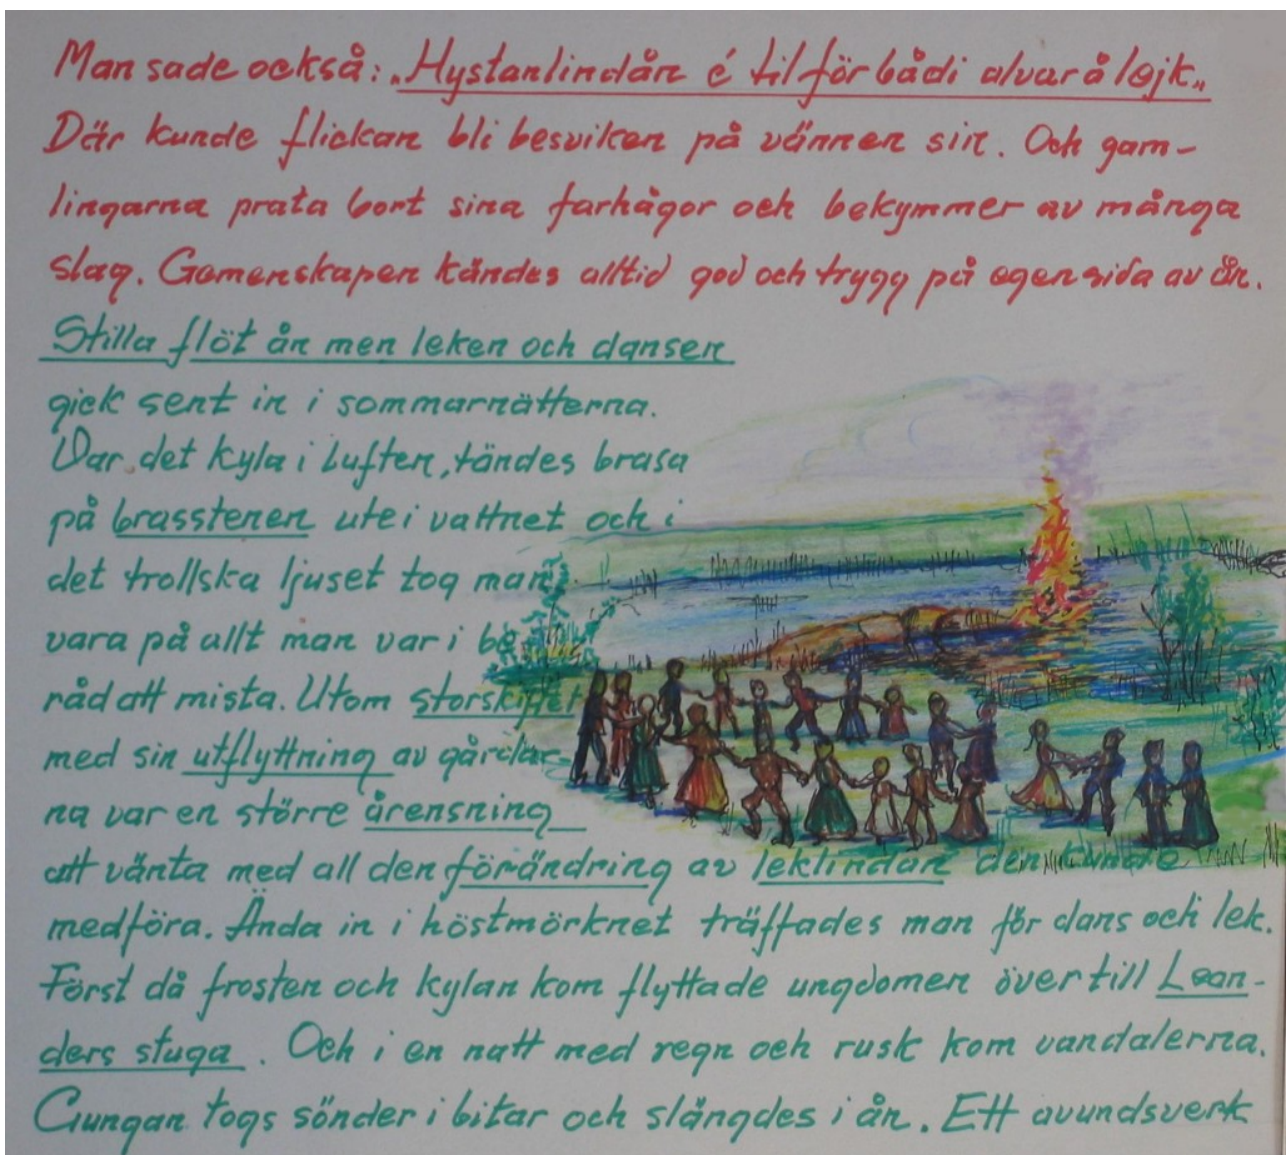 Man sade också: „Hystanlindån é til för bådi alvar å lejk„
Där kunde flickan bli besviken på vännen sin. Och gam-
lingarna prata bort sina farhågor och bekymmer av många
slag. Gemenskapen kändes alltid god och trygg på egen sida av ån.
Stilla flöt ån men leken och dansen
gick sent in i sommarnätterna.
Var det kyla i luften, tändes brasa
på brasstenen ute i vattnet och i
det trollska ljuset tog man
vara på allt man var i be
råd att mista. Utom storskiftet
med sin utflyttning av gårdar-
na var en större årensning
att vänta med all den förändring av leklindan den kunde
medföra. Ända in i höstmörknet träffades man för dans och lek.
Först då frosten och kylan kom flyttade ungdomen över till Lean-
ders stuga. Och i en natt med regn och rusk kom vandalerna.
Gungan togs sönder i bitar och slängdes i ån. Ett avundsverk